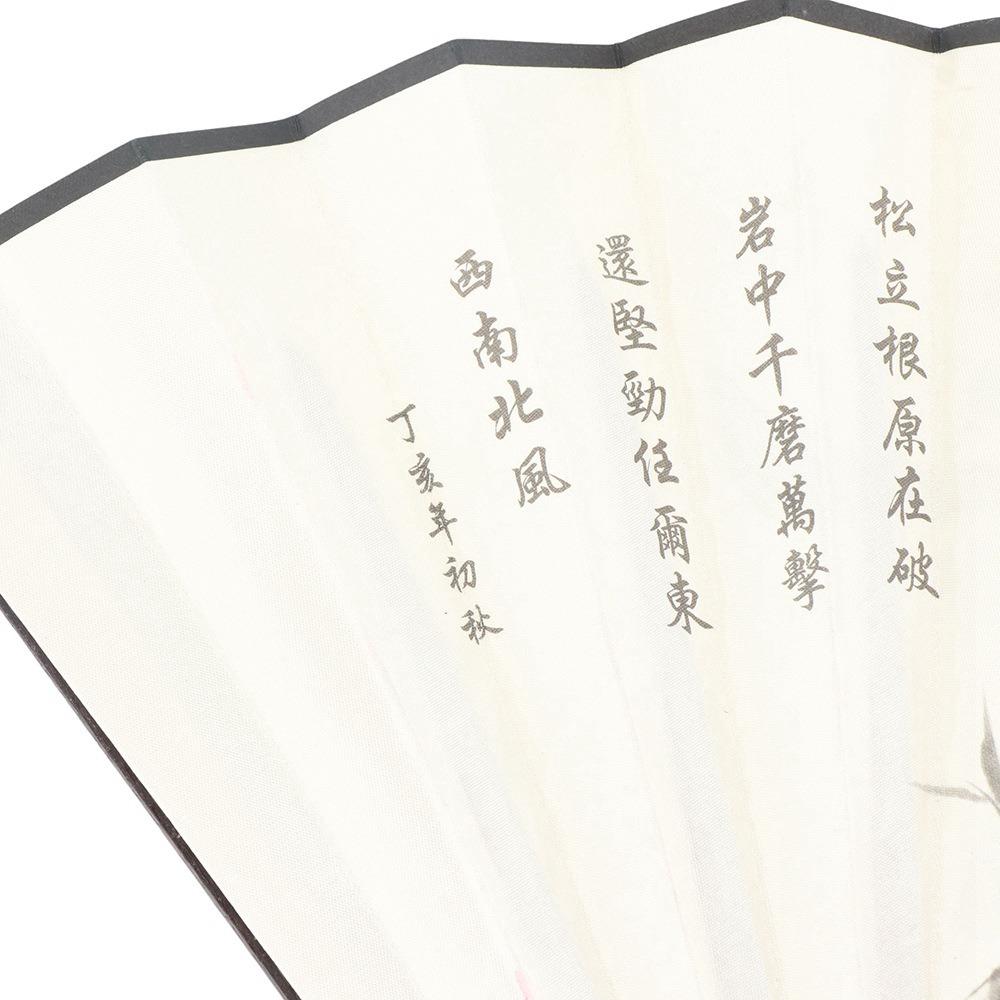 松立根原在破
岩中千磨萬擊
還堅勁任爾東
西南北風
丁亥年初秋